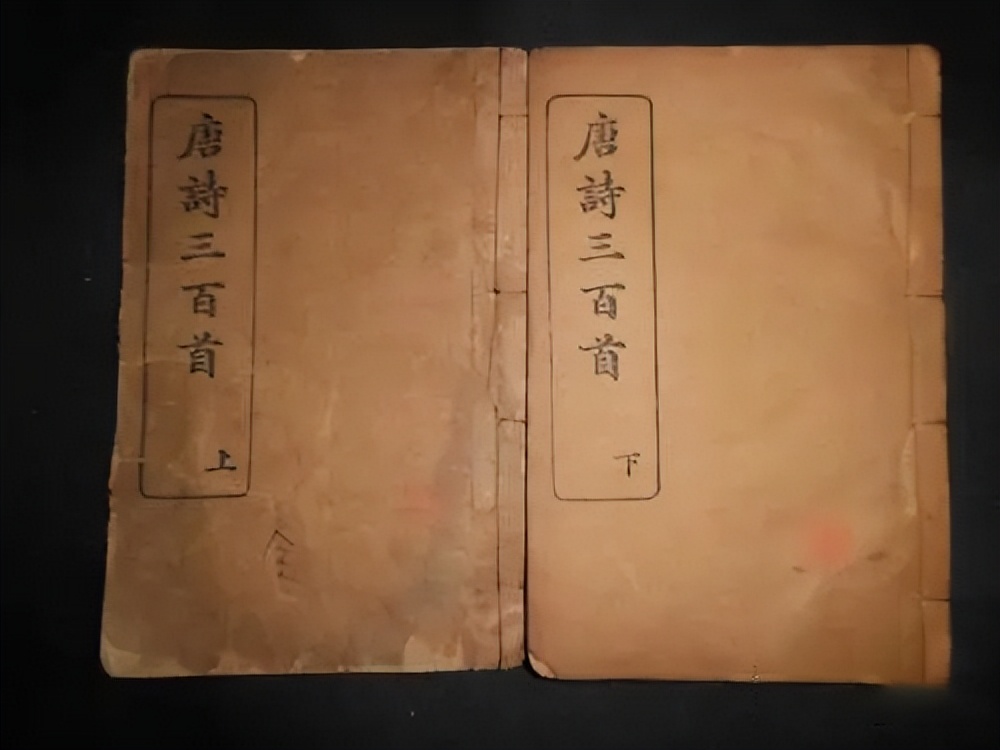 唐詩三百首
上
唐詩三百首
下